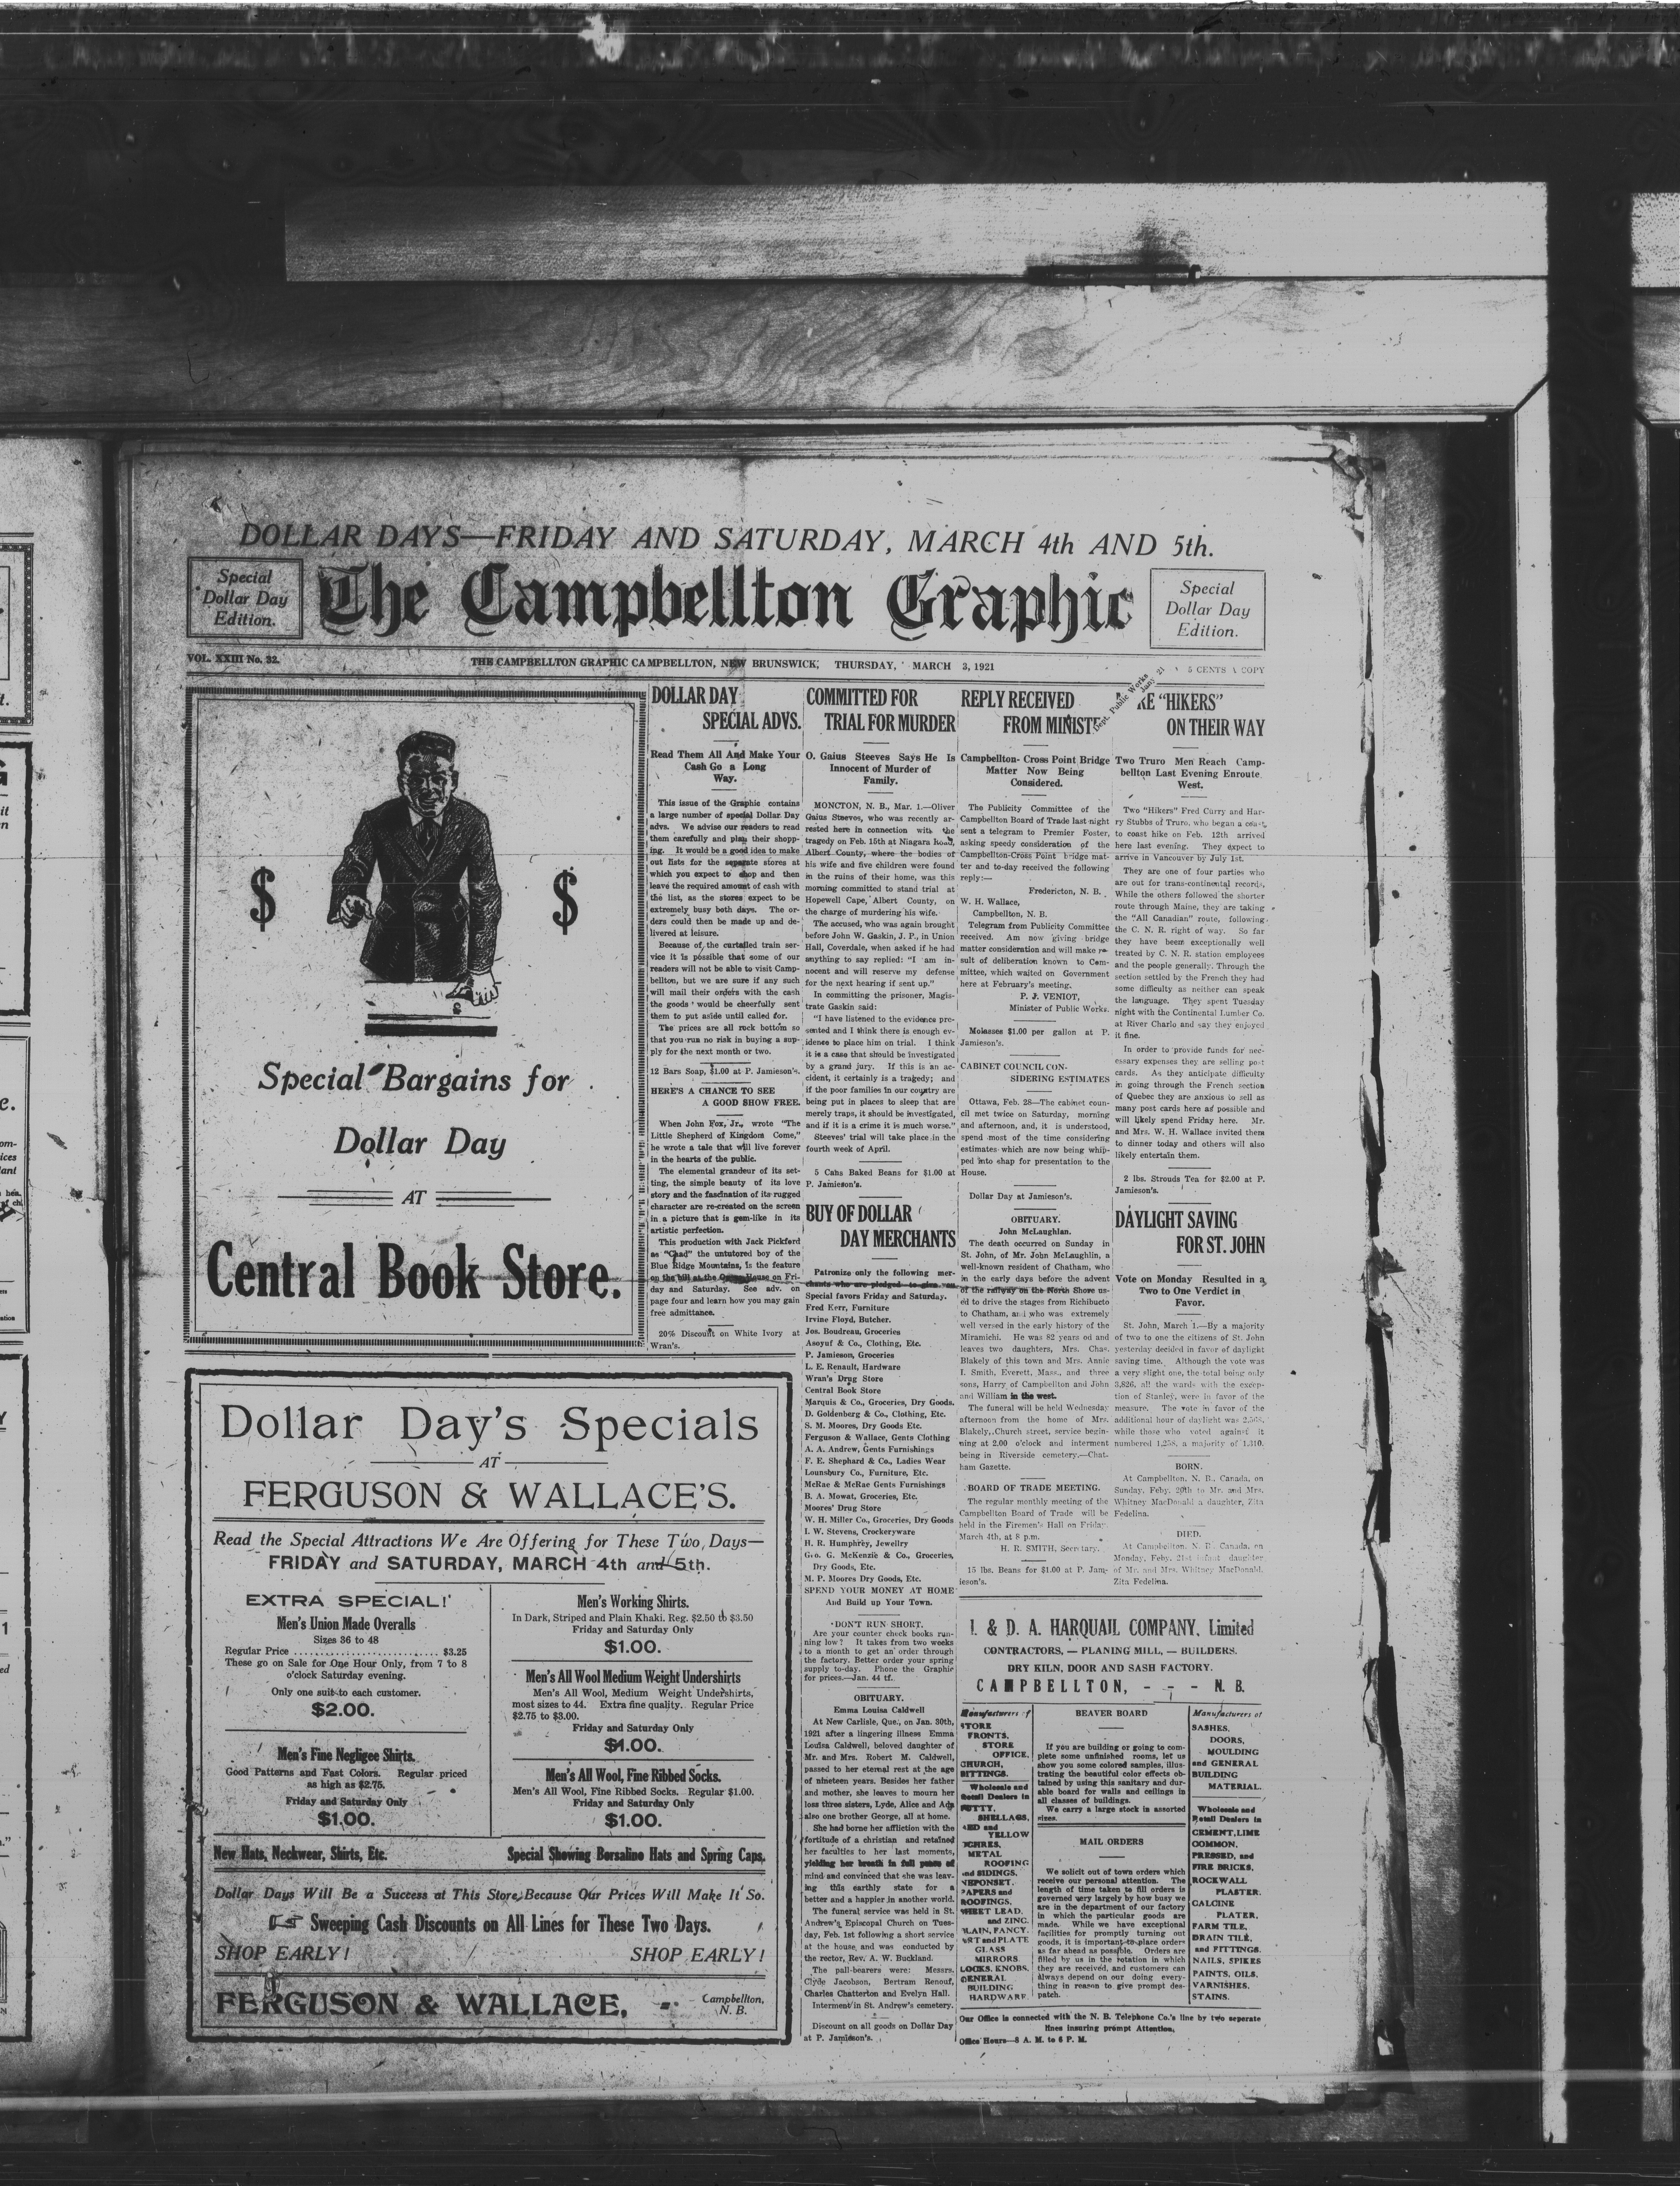 DOLLAR DAYS—FRIDAY AND SATURDAY, MARCH 4th AND 5th.
Special
Dollar Day
Edition.
The Campbellton Graphic
Special
Dollar Day
Edition.
VOL. XXIII No. 32.
THE CAMPBELLTON GRAPHIC CAMPBELLTON, NEW BRUNSWICK, THURSDAY, MARCH 3, 1921
5 CENTS A COPY
$ $
Special Bargains for
Dollar Day
AT
Central Book Store.
Dollar Day's Specials
AT
FERGUSON & WALLACE'S.
Read the Special Attractions We Are Offering for These Two Days—
FRIDAY and SATURDAY, MARCH 4th and 5th.
EXTRA SPECIAL!
Men's Union Made Overalls
Sizes 36 to 48
Regular Price .......................... $3.25
These go on Sale for One Hour Only, from 7 to 8
o'clock Saturday evening.
Only one suit to each customer.
$2.00.
Men's Fine Negligee Shirts.
Good Patterns and Fast Colors. Regular priced
as high as $2.75.
Friday and Saturday Only
$1.00.
Men's Working Shirts.
In Dark, Striped and Plain Khaki. Reg. $2.50 to $3.50
Friday and Saturday Only
$1.00.
Men's All Wool Medium Weight Undershirts
Men's All Wool, Medium Weight Undershirts,
most sizes to 44. Extra fine quality. Regular Price
$2.75 to $3.00.
Friday and Saturday Only
$1.00.
Men's All Wool, Fine Ribbed Socks.
Men's All Wool, Fine Ribbed Socks. Regular $1.00.
Friday and Saturday Only
$1.00.
New Hats, Neckwear, Shirts, Etc.
Special Showing Borsalino Hats and Spring Caps.
Dollar Days Will Be a Success at This Store, Because Our Prices Will Make It So.
Sweeping Cash Discounts on All Lines for These Two Days.
SHOP EARLY! SHOP EARLY!
FERGUSON & WALLACE,
Campbellton,
N. B.
DOLLAR DAY
SPECIAL ADVS.
Read Them All And Make Your
Cash Go a Long
Way.
This issue of the Graphic contains
a large number of special Dollar Day
advs. We advise our readers to read
them carefully and plan their shopp-
ing. It would be a good idea to make
out lists for the separate stores at
which you expect to shop and then
leave the required amount of cash with
the list, as the stores expect to be
extremely busy both days. The or-
ders could then be made up and de-
livered at leisure.
Because of the curtailed train ser-
vice it is possible that some of our
readers will not be able to visit Camp-
bellton, but we are sure if any such
will mail their orders with the cash
the goods would be cheerfully sent
them to put aside until called for.
The prices are all rock bottom so
that you run no risk in buying a sup-
ply for the next month or two.
12 Bars Soap, $1.00 at P. Jamieson's.
HERE'S A CHANCE TO SEE
A GOOD SHOW FREE.
When John Fox, Jr., wrote "The
Little Shepherd of Kingdom Come,"
he wrote a tale that will live forever
in the hearts of the public.
The elemental grandeur of its set-
ting, the simple beauty of its love
story and the fascination of its rugged
character are re-created on the screen
in a picture that is gem-like in its
artistic perfection.
This production with Jack Pickford
as "Chad" the untutored boy of the
Blue Ridge Mountains, is the feature
on the bill at the Opera House on Fri-
day and Saturday. See adv. on
page four and learn how you may gain
free admittance.
20% Discount on White Ivory at
Wran's.
COMMITTED FOR
TRIAL FOR MURDER
O. Gaius Steeves Says He Is
Innocent of Murder of
Family.
MONCTON, N. B., Mar. 1.—Oliver
Gaius Steeves, who was recently ar-
rested here in connection with the
tragedy on Feb. 15th at Niagara Road,
Albert County, where the bodies of
his wife and five children were found
in the ruins of their home, was this
morning committed to stand trial at
Hopewell Cape, Albert County, on
the charge of murdering his wife.
The accused, who was again brought
before John W. Gaskin, J. P., in Union
Hall, Coverdale, when asked if he had
anything to say replied: "I am in-
nocent and will reserve my defense
for the next hearing if sent up."
In committing the prisoner, Magis-
trate Gaskin said:
"I have listened to the evidence pre-
sented and I think there is enough ev-
idence to place him on trial. I think
it is a case that should be investigated
by a grand jury. If this is an ac-
cident, it certainly is a tragedy; and
if the poor families in our country are
being put in places to sleep that are
merely traps, it should be investigated,
and if it is a crime it is much worse."
Steeves' trial will take place in the
fourth week of April.
5 Cans Baked Beans for $1.00 at
P. Jamieson's.
BUY OF DOLLAR
DAY MERCHANTS
Patronize only the following mer-
chants who are pledged to give you
Special favors Friday and Saturday.
Fred Kerr, Furniture
Irvine Floyd, Butcher.
Jos. Boudreau, Groceries
Asoyuf & Co., Clothing, Etc.
P. Jamieson, Groceries
L. E. Renault, Hardware
Wran's Drug Store
Central Book Store
Marquis & Co., Groceries, Dry Goods.
D. Goldenberg & Co., Clothing, Etc.
S. M. Moores, Dry Goods Etc.
Ferguson & Wallace, Gents Clothing
A. A. Andrew, Gents Furnishings
F. E. Shephard & Co., Ladies Wear
Lounsbury Co., Furniture, Etc.
McRae & McRae Gents Furnishings
B. A. Mowat, Groceries, Etc.
Moores' Drug Store
W. H. Miller Co., Groceries, Dry Goods
I. W. Stevens, Crockeryware
H. R. Humphrey, Jewellry
Geo. G. McKenzie & Co., Groceries,
Dry Goods, Etc.
M. P. Moores Dry Goods, Etc.
SPEND YOUR MONEY AT HOME
And Build up Your Town.
DON'T RUN SHORT.
Are your counter check books run-
ning low? It takes from two weeks
to a month to get an order through
the factory. Better order your spring
supply to-day. Phone the Graphic
for prices.—Jan. 44 tf.
OBITUARY.
Emma Louisa Caldwell
At New Carlisle, Que., on Jan. 30th,
1921 after a lingering illness Emma
Louisa Caldwell, beloved daughter of
Mr. and Mrs. Robert M. Caldwell,
passed to her eternal rest at the age
of nineteen years. Besides her father
and mother, she leaves to mourn her
loss three sisters, Lyde, Alice and Ada
also one brother George, all at home.
She had borne her affliction with the
fortitude of a christian and retained
her faculties to her last moments,
yielding her breath in full peace of
mind and convinced that she was leav-
ing this earthly state for a
better and a happier in another world.
The funeral service was held in St.
Andrew's Episcopal Church on Tues-
day, Feb. 1st following a short service
at the house and was conducted by
the rector, Rev. A. W. Buckland.
The pall-bearers were: Messrs.
Clyde Jacobson, Bertram Renouf,
Charles Chatterton and Evelyn Hall.
Interment in St. Andrew's cemetery.
Discount on all goods on Dollar Day
at P. Jamieson's.
REPLY RECEIVED
FROM MINISTE
Dept. Public Works
Jany 21
Campbellton- Cross Point Bridge
Matter Now Being
Considered.
The Publicity Committee of the
Campbellton Board of Trade last night
sent a telegram to Premier Foster,
asking speedy consideration of the
Campbellton-Cross Point bridge mat-
ter and to-day received the following
reply:—
Fredericton, N. B.
W. H. Wallace,
Campbellton, N. B.
Telegram from Publicity Committee
received. Am now giving bridge
matter consideration and will make re-
sult of deliberation known to Com-
mittee, which waited on Government
here at February's meeting.
P. J. VENIOT,
Minister of Public Works.
Molasses $1.00 per gallon at P.
Jamieson's.
CABINET COUNCIL CON-
SIDERING ESTIMATES
Ottawa, Feb. 28—The cabinet coun-
cil met twice on Saturday, morning
and afternoon, and, it is understood,
spend most of the time considering
estimates which are now being whip-
ped into shap for presentation to the
House.
Dollar Day at Jamieson's.
OBITUARY.
John McLaughlan.
The death occurred on Sunday in
St. John, of Mr. John McLaughlin, a
well-known resident of Chatham, who
in the early days before the advent
of the railway on the North Shore us-
ed to drive the stages from Richibucto
to Chatham, and who was extremely
well versed in the early history of the
Miramichi. He was 82 years od and
leaves two daughters, Mrs. Chas.
Blakely of this town and Mrs. Annie
I. Smith, Everett, Mass., and three
sons, Harry of Campbellton and John
and William in the west.
The funeral will be held Wednesday
afternoon from the home of Mrs.
Blakely, Church street, service begin-
ning at 2.00 o'clock and interment
being in Riverside cemetery.—Chat-
ham Gazette.
BOARD OF TRADE MEETING.
The regular monthly meeting of the
Campbellton Board of Trade will be
held in the Firemen's Hall on Friday,
March 4th, at 8 p.m.
H. R. SMITH, Secretary.
15 lbs. Beans for $1.00 at P. Jam-
ieson's.
RE "HIKERS"
ON THEIR WAY
Two Truro Men Reach Camp-
bellton Last Evening Enroute
West.
Two "Hikers" Fred Curry and Har-
ry Stubbs of Truro, who began a coast
to coast hike on Feb. 12th arrived
here last evening. They expect to
arrive in Vancouver by July 1st.
They are one of four parties who
are out for trans-continental records.
While the others followed the shorter
route through Maine, they are taking
the "All Canadian" route, following
the C. N. R. right of way. So far
they have beem exceptionally well
treated by C. N. R. station employees
and the people generally. Through the
section settled by the French they had
some difficulty as neither can speak
the language. They spent Tuesday
night with the Continental Lumber Co.
at River Charlo and say they enjoyed
it fine.
In order to provide funds for nec-
essary expenses they are selling post
cards. As they anticipate difficulty
in going through the French section
of Quebec they are anxious to sell as
many post cards here as possible and
will likely spend Friday here. Mr.
and Mrs. W. H. Wallace invited them
to dinner today and others will also
likely entertain them.
2 lbs. Strouds Tea for $2.00 at P.
Jamieson's.
DAYLIGHT SAVING
FOR ST. JOHN
Vote on Monday Resulted in a
Two to One Verdict in
Favor.
St. John, March 1.—By a majority
of two to one the citizens of St. John
yesterday decided in favor of daylight
saving time. Although the vote was
a very slight one, the total being only
3,826, all the wards with the excep-
tion of Stanley, were in favor of the
measure. The vote in favor of the
additional hour of daylight was 2,568,
while those who voted against it
numbered 1,258, a majority of 1,310.
BORN.
At Campbellton, N. B., Canada, on
Sunday, Feby. 20th to Mr. and Mrs.
Whitney MacDonald a daughter, Zita
Fedelina.
DIED.
At Campbellton, N. B. Canada, on
Monday, Feby. 21st infant daughter
of Mr. and Mrs. Whitney MacDonald,
Zita Fedelina.
& D. A. HARQUAIL COMPANY, Limited
CONTRACTORS, — PLANING MILL, — BUILDERS.
DRY KILN, DOOR AND SASH FACTORY.
CAMPBELLTON, - - - N. B.
Manufacturers of
STORE
FRONTS,
STORE
OFFICE,
CHURCH,
FITTINGS.
Wholesale and
Retail Dealers in
PUTTY,
SHELLACS,
RED and
YELLOW
OCHRES,
METAL
ROOFING
and SIDINGS.
NEPONSET.
PAPERS and
ROOFINGS.
SHEET LEAD.
and ZINC.
PLAIN, FANCY.
ART and PLATE
GLASS
MIRRORS.
LOCKS, KNOBS.
GENERAL
BUILDING
HARDWARE.
BEAVER BOARD
If you are building or going to com-
plete some unfinished rooms, let us
show you some colored samples, illus-
trating the beautiful color effects ob-
tained by using this sanitary and dur-
able board for walls and ceilings in
all classes of buildings.
We carry a large stock in assorted
sizes.
MAIL ORDERS
We solicit out of town orders which
receive our personal attention. The
length of time taken to fill orders is
governed very largely by how busy we
are in the department of our factory
in which the particular goods are
made. While we have exceptional
facilities for promptly turning out
goods, it is important to place orders
as far ahead as possible. Orders are
filled by us in the rotation in which
they are received, and customers can
always depend on our doing every-
thing in reason to give prompt des-
patch.
Manufacturers of
SASHES,
DOORS,
MOULDING
and GENERAL
BUILDING
MATERIAL.
Wholesale and
Retail Dealers in
CEMENT, LIME
COMMON,
PRESSED, and
FIRE BRICKS,
ROCKWALL
PLASTER.
CALCINE
PLATER,
FARM TILE,
DRAIN TILE,
and FITTINGS.
NAILS, SPIKES
PAINTS, OILS,
VARNISHES,
STAINS.
Our Office is connected with the N. B. Telephone Co.'s line by two seperate
lines insuring prompt Attention,
Office Hours—8 A. M. to 6 P. M.